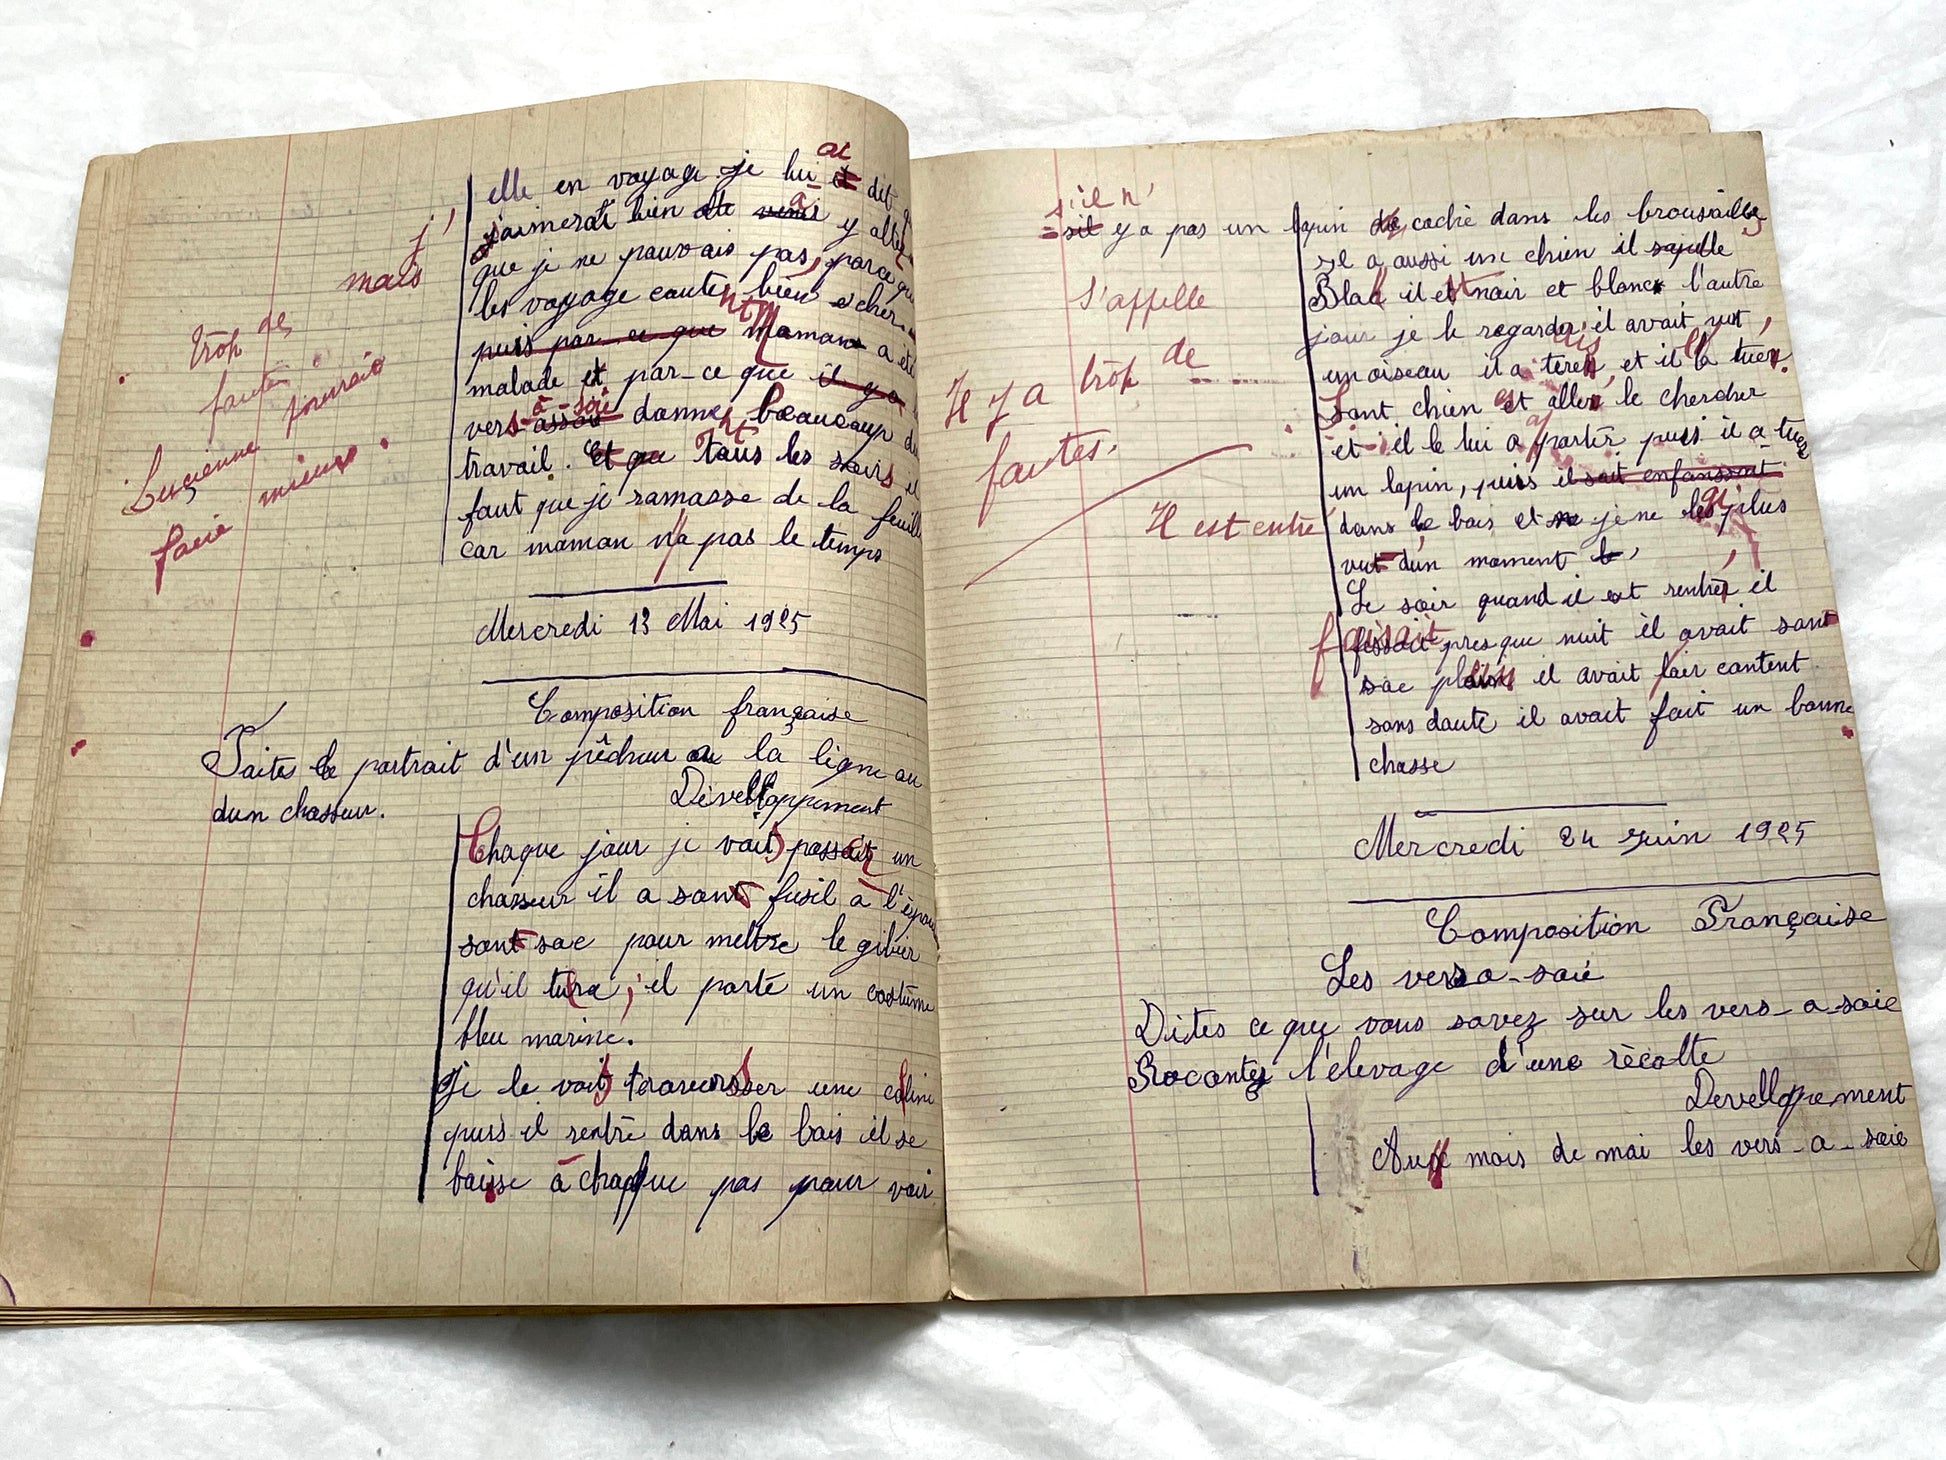 elle en voyage je lui ai dit
j'
j'aimerai bien y aller
mais
que je ne pouvais pas, parce que
les voyage coutent bien cher
puis par ce que Maman a été
trop de
malade et par-ce que il y a
fautes
vers à soie donnent beaucoup de
Lucienne pourrait
travail. Et que Tous les soirs il
faire mieux.
faut que je ramasse de la feuille
car maman n'a pas le temps
Mercredi 13 Mai 1925
Composition française
Faites le portrait d'un pêcheur a la ligne ou
dun chasseur.
Develloppement
Chaque jour je vois passer un
chasseur il a sont fusil à l'épaule
sont sac pour mettre le gibier
qu'il tura, il porte un costume
bleu marine.
Je le voit traversser une coline
puis il rentre dans le bois il se
baisse à chaque pas pour voir
s'il n'
sil y a pas un lapin caché dans les brousailles
il a aussi un chien il sapelle
s'appelle
Blak il et noir et blanc l'autre
jour je le regardais il avait vut,
un oiseau il a tirer, et il la tuer.
Il y a trop de
Sont chien et aller le chercher
fautes.
et il le lui a porter puis il a tuer
un lapin, puis il sait enfanssont
Il est entré
dans le bois et je ne les plus
vut d'un moment
Le soir quand il est rentrer il
faisait
fessait presque nuit il avait sont
sac plein il avait lair content
sans doute il avait fait un bonne
chasse
Mercredi 24 Juin 1925
Composition Française
Les vers a-soie
Dites ce que vous savez sur les vers-a-soie
Racontez l'élevage d'une récolte
Devellopement
Aux mois de mai les vers-a-soie